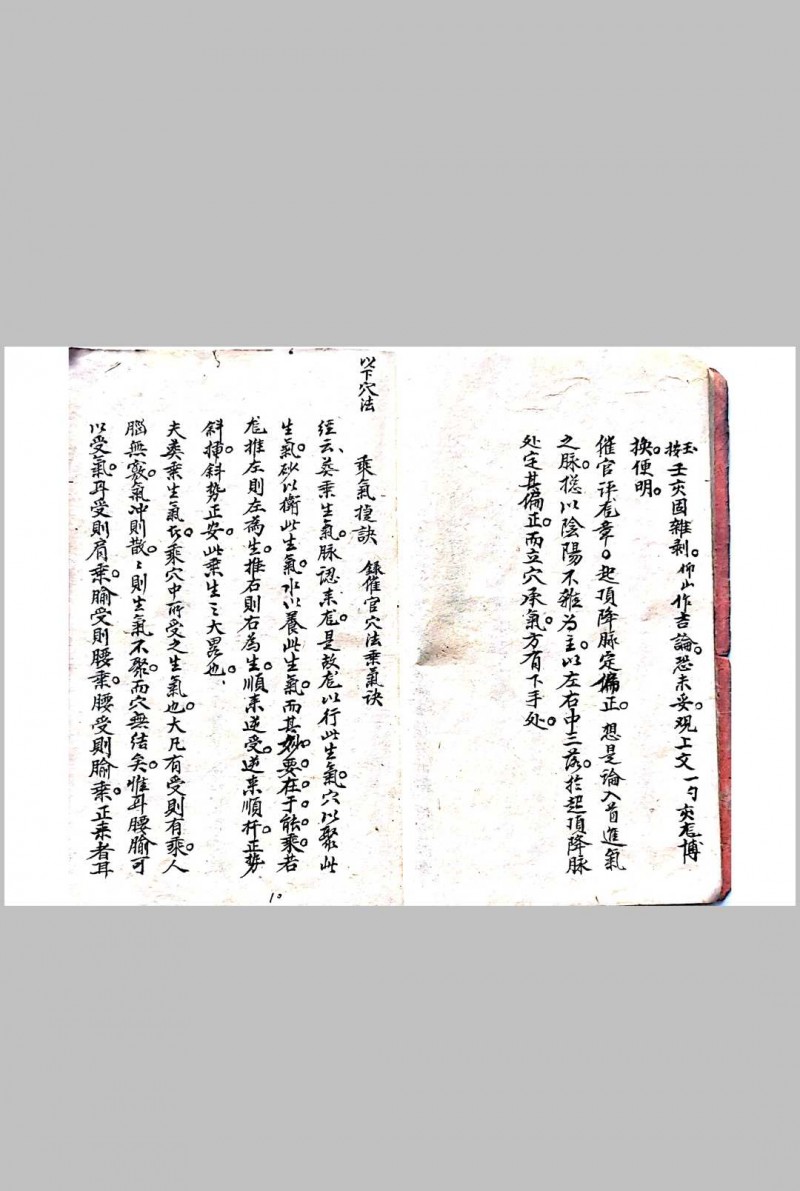 玉按壬亥固雜剥。仰山作吉論。恐未妥。观上文一勺亥龙博
换。便明。
催官评龙章。起頂降脉定偏正。想是論入首進氣
之脉。揔以陰陽不雜为主。以左右中三落。扵起頂降脉
处定其偏正。而立穴承氣。方有下手处。
以下穴法
乘氣捷訣 錄催官穴法乘氣诀
经云、葵乘生氣。脉認来龙。是故龙以行此生氣。穴以聚此
生氣。砂以衛此生氣。水以養此生氣。而其妙要在于能乘。若
龙推左則左为生。推右則右为生。順来逆受。逆来順杄。正势
斜揷。斜势正安。此乘生之大畧也、
夫葵乘生氣者。乘穴中所受之生氣也。大凡有受則有乘。人
腦無竅。氣冲則散。〻則生氣不聚。而穴無结矣。惟耳腰腧可
以受氣。耳受則肩乘。腧受則腰乘。腰受則腧乘。正来者耳
10